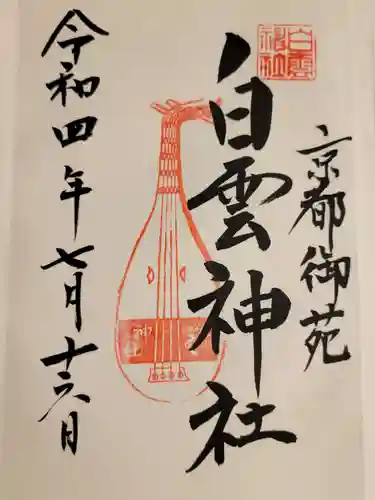 京都御苑
白雲神社
白雲神社
令和四年七月十六日